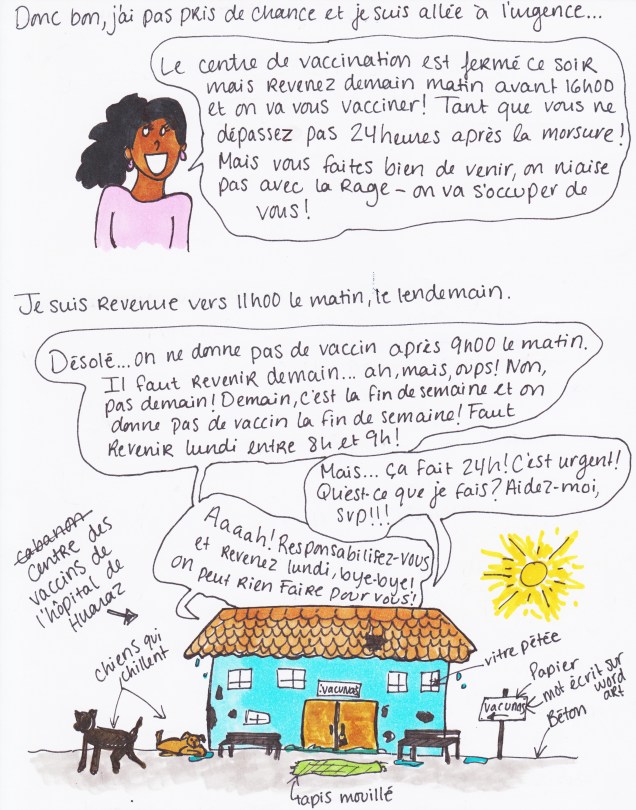 Donc bon, j'ai pas pris de chance et je suis allée à l'urgence...
Le centre de vaccination est fermé ce soir
mais revenez demain matin avant 16h00
et on va vous vacciner! Tant que vous ne
dépassez pas 24 heures après la morsure!
Mais vous faites bien de venir, on niaise
pas avec la rage - on va s'occuper de
vous!
Je suis revenue vers 11h00 le matin, le lendemain.
Désolé... on ne donne pas de vaccin après 9h00 le matin.
Il faut revenir demain... ah, mais, oups! Non,
pas demain! Demain, c'est la fin de semaine et on
donne pas de vaccin la fin de semaine! Faut
revenir lundi entre 8h et 9h!
Mais... ça fait 24h! C'est urgent!
Qu'est-ce que je fais? Aidez-moi,
svp!!!
Aaaah! Responsabilisez-vous
et revenez lundi, bye-bye!
on peut rien faire pour vous!
cabanon
Centre des
vaccins de
l'hôpital de
Huaraz
chiens qui
chillent
vacunas
vitre pétée
vacunas
Papier
mot écrit sur
word
art
Béton
tapis mouillé